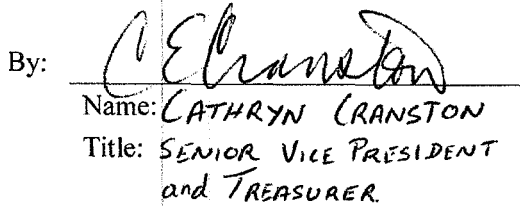 By: C E Cranston
Name: CATHRYN CRANSTON
Title: SENIOR VICE PRESIDENT
and TREASURER.